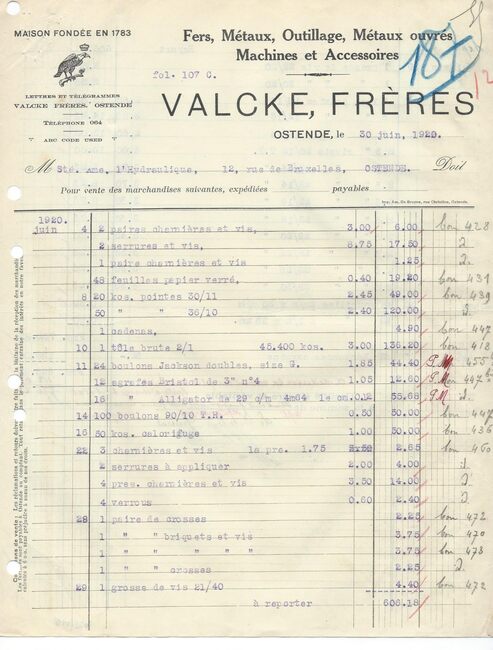 MAISON FONDÉE EN 1783
Fers, Métaux, Outillage, Métaux ouvrés
Machines et Accessoires
fol. 107 C.
LETTRES ET TÉLÉGRAMMES
VALCKE FRÈRES. OSTENDE
TÉLÉPHONE 064
" ABC CODE USED "
VALCKE, FRÈRES
OSTENDE, le 30 juin, 1920.
M Sté. Ame. l'Hydraulique, 12, rue de Bruxelles, OSTENDE. Doit
Pour vente des marchandises suivantes, expédiées payables
1920.
juin 4 2 paires charnières et vis, 3.00 6.00 bon 428
2 serrures et vis, 8.75 17.50 d.
1 paire charnières et vis 1.25 d.
48 feuilles papier verré, 0.40 19.20 bon 431
8 20 kos. pointes 30/11 2.45 49.00 bon 439
50 " " 36/10 2.40 120.00 d.
1 cadenas, 4.90 bon 447
10 1 tôle brute 2/1 45.400 kos. 3.00 136.20 bon 418
11 24 boulons Jackson doubles, size G. 1.85 44.40 P.M. 455
12 agrafes Bristol de 3" n°4 1.05 12.60 P.M. 447
16 " Alligator de 29 c/m 4m64 le cm. 0.12 55.68 P.M. d.
14 100 boulons 90/10 T.H. 0.50 50.00 bon 447
16 50 kos. calorifuge 1.00 50.00 bon 436
22 3 charnières et vis la pre. 1.75 2.65 bon 460
2 serrures à appliquer 2.00 4.00 d.
4 pres. charnières et vis 3.50 14.00 d.
4 verrous 0.60 2.40 d.
28 1 paire de crosses 2.25 bon 472
1 " " briquets et vis 3.75 bon 470
1 " " " " " 3.75 bon 473
1 " " crosses 2.25 d.
29 1 grosse de vis 21/40 4.40 bon 472
à reporter 606.18